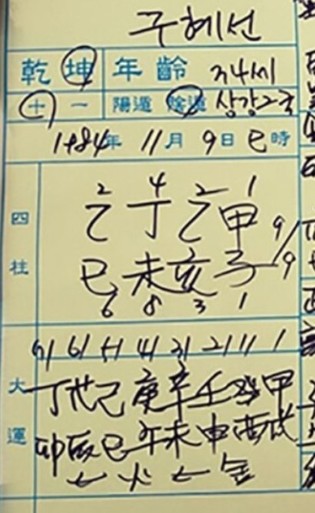 구혜선
乾 坤 年 齡 34세
十 一 陽遁 陰遁 상강2국
1984年 11月 9日 巳時
四柱
2 4 2 1
乙 丁 乙 甲 9/9
巳 未 亥 子
6 8 3 1
大運
71 61 51 41 31 21 11 1
丁 戊 己 庚 辛 壬 癸 甲
卯 辰 巳 午 未 申 酉 戌
← 火 ← 金